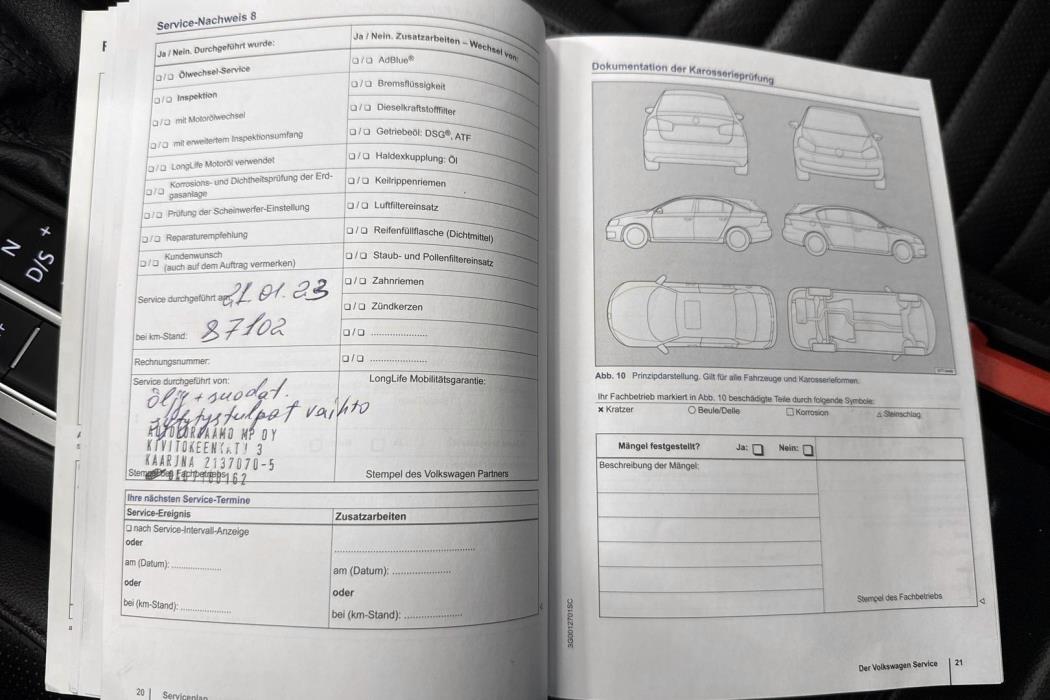 Service-Nachweis 8
Ja / Nein. Durchgeführt wurde:
Ölwechsel-Service
Inspektion
mit Motorölwechsel
mit erweitertem Inspektionsumfang
LongLife Motoröl verwendet
Korrosions- und Dichtheitsprüfung der Erd-
gasanlage
Prüfung der Scheinwerfer-Einstellung
Reparaturempfehlung
Kundenwunsch
(auch auf dem Auftrag vermerken)
Service durchgeführt am: 21.01.23
bei km-Stand: 87102
Rechnungsnummer:
Service durchgeführt von:
öljy + suodat.
vaihto
KIVITOKEENKATU 3
KAARINA 2137070-5
Ja / Nein. Zusatzarbeiten – Wechsel von:
AdBlue®
Bremsflüssigkeit
Dieselkraftstofffilter
Getriebeöl: DSG®, ATF
Haldexkupplung: Öl
Keilrippenriemen
Luftfiltereinsatz
Reifenfüllflasche (Dichtmittel)
Staub- und Pollenfiltereinsatz
Zahnriemen
Zündkerzen
LongLife Mobilitätsgarantie:
Stempel des Volkswagen Partners
Ihre nächsten Service-Termine
Service-Ereignis
nach Service-Intervall-Anzeige
oder
am (Datum): ....................
oder
bei (km-Stand): ....................
Zusatzarbeiten
am (Datum): ....................
oder
bei (km-Stand): ....................
20 Serviceplan
Dokumentation der Karosserieprüfung
Abb. 10 Prinzipdarstellung. Gilt für alle Fahrzeuge und Karosserieformen.
Ihr Fachbetrieb markiert in Abb. 10 beschädigte Teile durch folgende Symbole:
× Kratzer ○ Beule/Delle □ Korrosion △ Steinschlag
Mängel festgestellt? Ja: Nein:
Beschreibung der Mängel:
Stempel des Fachbetriebs
3G0012701SC
Der Volkswagen Service 21